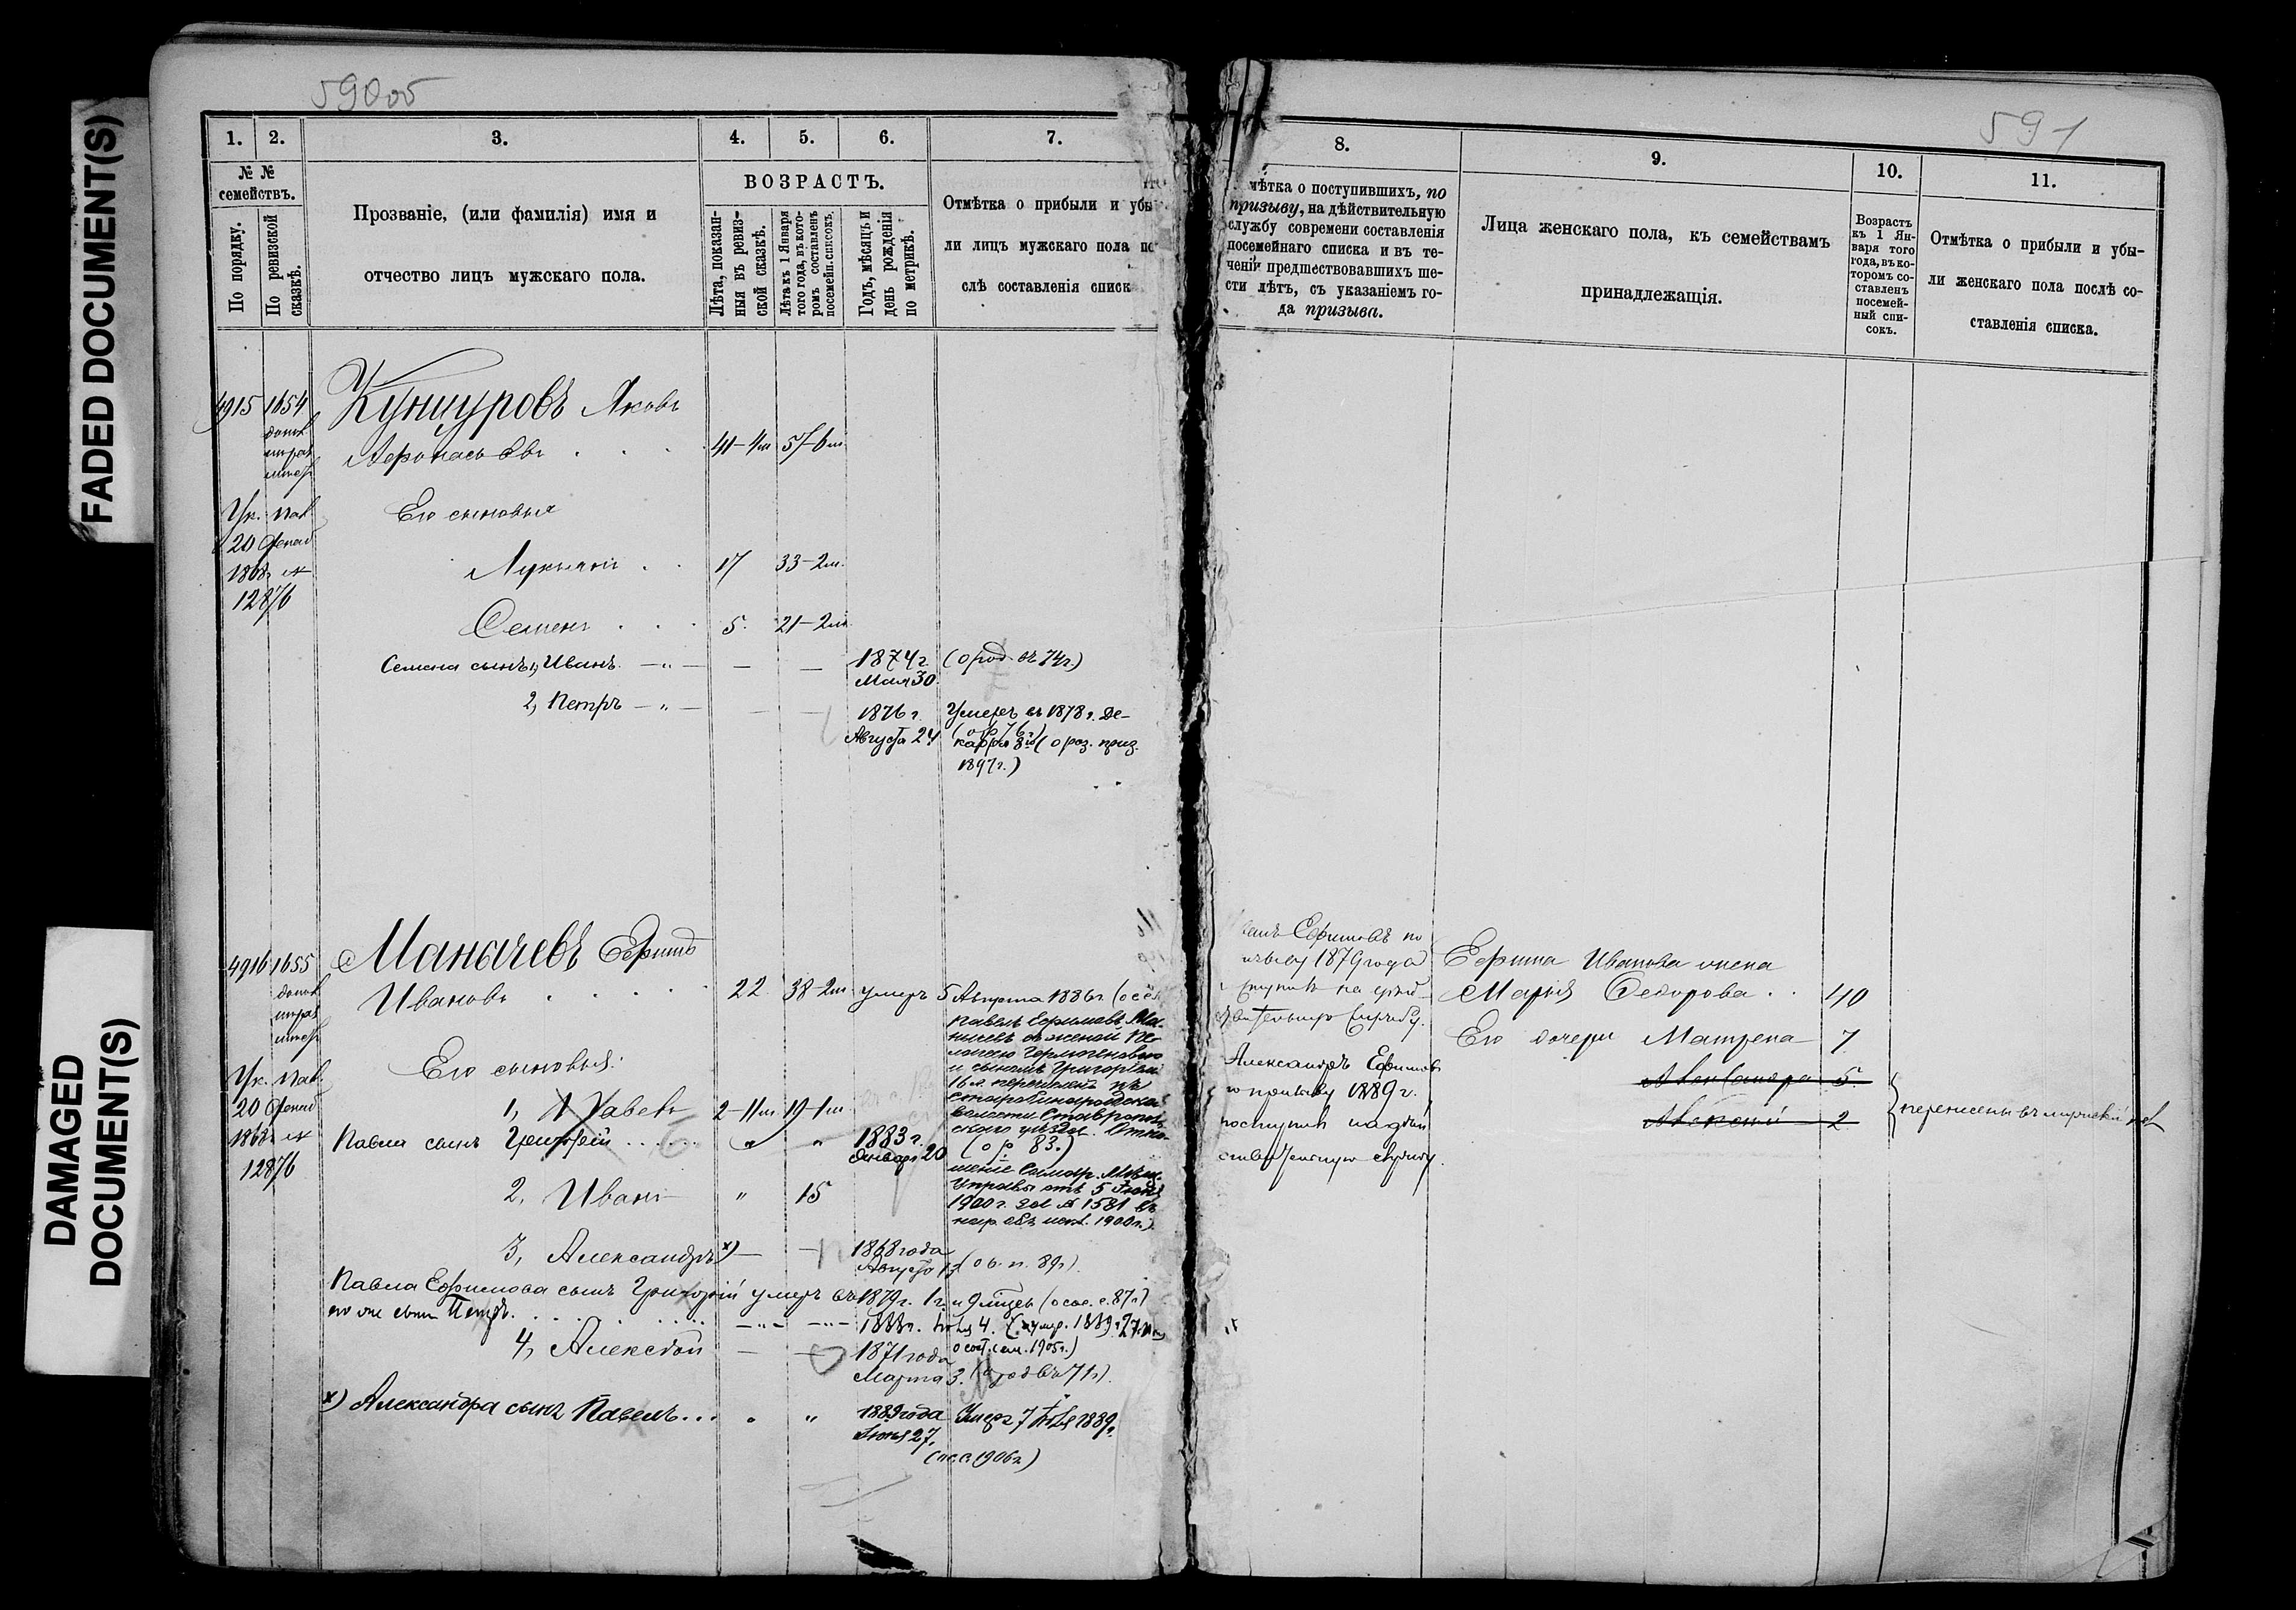 FADED DOCUMENT(S)
DAMAGED
DOCUMENT(S)
590об
1. 2. 3. 4. 5. 6. 7.
№ №
семействъ.
По порядку.
По ревизской
сказкѣ.
Прозваніе, (или фамилія) имя и
отчество лицъ мужскаго пола.
ВОЗРАСТЪ.
Лѣта, показан-
ныя въ ревиз-
ской сказкѣ.
Лѣта къ 1 Января
того года, въ кото-
ромъ составленъ
посемейн. списокъ.
Годъ, мѣсяцъ и
день рожденія
по метрикѣ.
Отмѣтка о прибыли и убы
ли лицъ мужскаго пола по
слѣ составленія списк
4915 1654 Кунчуровъ Яковъ
Афонасьевъ . . . 41-4м 57-6м
Ук. пал.
Его сыновья
20
1868 №
12876
Лукьянъ . . 17 33-2м.
Семенъ . . . 5. 21-2м
Семена сынъ 1, Иванъ — „ — — — 1874 г. (о род. въ 74 г.)
Мая 30
2, Петръ — „ — — — 1876 г. Умеръ въ 1878 г. Де-
Августа 24 кабря 8го (о роз. приз.
1897 г.)
4916 1655 Манычевъ Ефимъ
Ивановъ . . . . 22 38-2м умеръ 5 Августа 1886 г.
Павелъ Ефимовъ Ма-
нычевъ съ женой Пе-
лагею Гермогеновою
и сыномъ Григорьемъ
16 л. перечисленъ въ
волости Ставрополь-
скаго уѣзда. Отно-
(о р. 83.)
шеніе Самар. Мѣщ.
Управы отъ 5 Іюня
1900 г. за № 1581
1900 г.)
Ук. пал.
20
1868 №
12876
Его сыновья:
1, Павелъ 2-11м 19-1м
Павла сынъ Григорій . . . . „ „ 1883 г.
Января 20
2, Иванъ „ 15
3, Александръ х) — — 1868 года
Августа (о в. п. 89 г.)
Павла Ефимова сынъ Григорій умеръ въ 1879 г. 1 г. и 9 мѣсяц (о сос. с. 87 г.)
его же сынъ Петръ . . . . — „ — — „ — 1888 г. Іюля 4. (умер. 1889 г.
4, Алексѣй — — 1871 года о сост. сем. 1905 г.)
Марта 3. (о род. въ 71 г.)
х) Александра сынъ Павелъ . . . „ „ 1889 года Умеръ 7 Іюля 1889 г.
Іюня 27.
(п. с. 1906 г.)
591
8. 9. 10. 11.
мѣтка о поступившихъ, по
призыву, на дѣйствительную
службу современи составленія
посемейнаго списка и въ те-
ченіи предшествовавшихъ ше-
сти лѣтъ, съ указаніемъ го-
да призыва.
Лица женскаго пола, къ семействамъ
принадлежащія.
Возрастъ
къ 1 Ян-
варя того
года, въ ко-
торомъ со-
ставленъ
посемей-
ный спи-
сокъ.
Отмѣтка о прибыли и убы-
ли женскаго пола послѣ со-
ставленія списка.
Ефимовъ по
1879 года
на дѣй-
службу.
Александръ Ефимовъ
по призыву 1889 г.
поступилъ на дѣй
ствительную службу.
Ефима Иванова жена
Марья Федорова . . 40
Его дочери Матрена 7
Александра 5.
Алексѣй 2
перенесены въ мужской пол